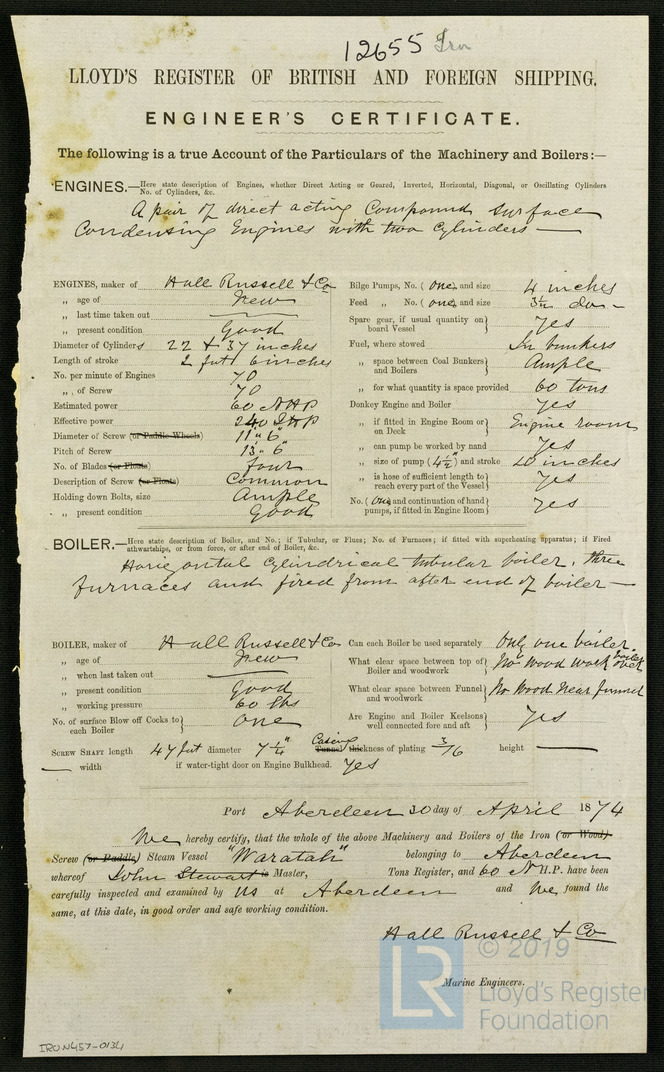 12655 Iron
LLOYD'S REGISTER OF BRITISH AND FOREIGN SHIPPING.
ENGINEER'S CERTIFICATE.
The following is a true Account of the Particulars of the Machinery and Boilers:—
ENGINES.—Here state description of Engines, whether Direct Acting or Geared, Inverted, Horizontal, Diagonal, or Oscillating Cylinders
No. of Cylinders, &c.
A pair of direct acting Compound surface
Condensing Engines with two Cylinders —
ENGINES, maker of Hall Russell & Co
„ age of New
„ last time taken out ——
„ present condition Good
Diameter of Cylinders 22 & 37 inches
Length of stroke 2 feet 6 inches
No. per minute of Engines 70
„ „ of Screw 70
Estimated power 60 NHP
Effective power 240 IHP
Diameter of Screw (or Paddle Wheels) 11" 6"
Pitch of Screw 13" 6"
No. of Blades (or Floats) four
Description of Screw (or Floats) Common
Holding down Bolts, size Ample
„ present condition Good
Bilge Pumps, No. (one) and size 4 inches
Feed „ No. (one) and size 3½ do —
Spare gear, if usual quantity on board Vessel} Yes
Fuel, where stowed In bunkers
„ space between Coal Bunkers and Boilers} Ample
„ for what quantity is space provided 60 tons
Donkey Engine and Boiler Yes
„ if fitted in Engine Room or on Deck} Engine room
„ can pump be worked by hand Yes
„ size of pump (4½") and stroke 20 inches
„ is hose of sufficient length to reach every part of the Vessel} Yes
No. (One) and continuation of hand pumps, if fitted in Engine Room} Yes
BOILER.—Here state description of Boiler, and No.; if Tubular, or Flues; No. of Furnaces; if fitted with superheating apparatus; if Fired
athwartships, or from force, or after end of Boiler, &c.
Horizontal Cylindrical tubular boiler, three
furnaces and fired from after end of boiler —
BOILER, maker of Hall Russell & Co
„ age of New
„ when last taken out ——
„ present condition Good
„ working pressure 60 lbs
No. of surface Blow off Cocks to each Boiler} One
Can each Boiler be used separately Only one boiler
What clear space between top of Boiler and woodwork} No wood work over boiler
What clear space between Funnel and woodwork} No Wood Near funnel
Are Engine and Boiler Keelsons well connected fore and aft} Yes
SCREW SHAFT length 47 feet diameter 7¼" Casing Tunnel thickness of plating 3/16 height ——
— width if water-tight door on Engine Bulkhead. Yes
Port Aberdeen 30 day of April 1874
We hereby certify, that the whole of the above Machinery and Boilers of the Iron (or Wood)
Screw (or Paddle) Steam Vessel "Waratah" belonging to Aberdeen
whereof John Stewart is Master, Tons Register, and 60 N H.P. have been
carefully inspected and examined by us at Aberdeen and We found the
same, at this date, in good order and safe working condition.
Hall Russell & Co
Marine Engineers.
LR © 2019
Lloyd's Register
Foundation
IRON457-0134